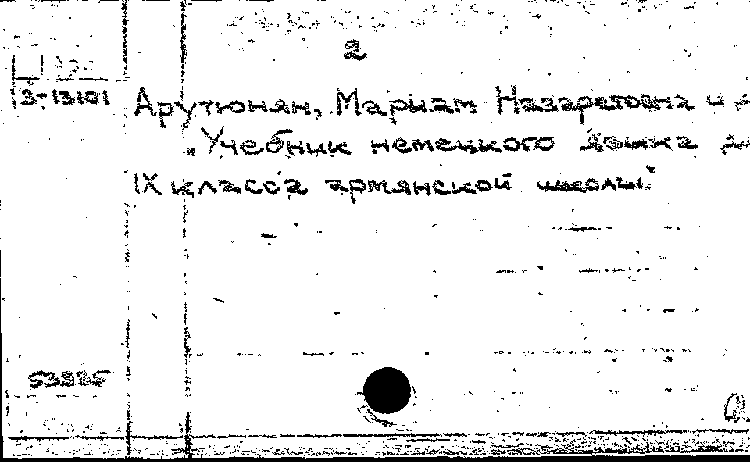 2
З-13101
Арутюнян, Мариам Назаретовна и
Учебник немецкого языка
IX класса армянской школы
53825